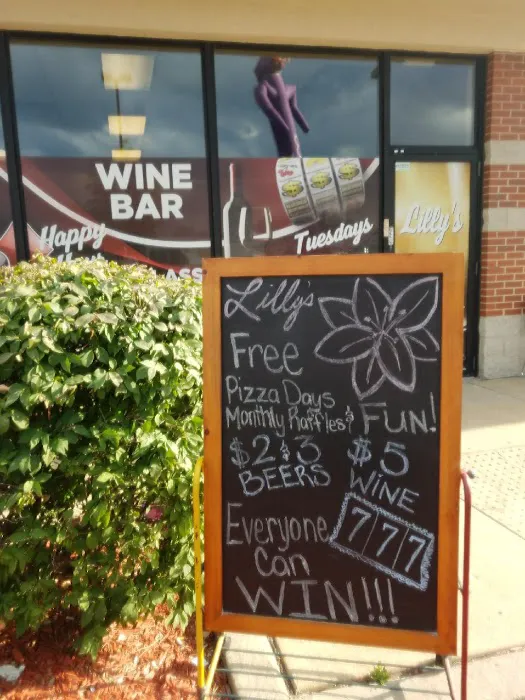 WINE
BAR
Happy
Tuesdays
Lilly's
Lilly's
Free
Pizza Days
Monthly Raffles &
FUN!
$2 & 3
BEERS
$5
WINE
777
Everyone
Can
WIN!!!